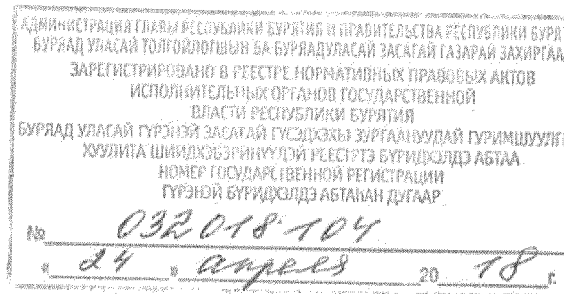 АДМИНИСТРАЦИЯ ГЛАВЫ РЕСПУБЛИКИ БУРЯТИЯ И ПРАВИТЕЛЬСТВА РЕСПУБЛИКИ БУРЯТ
БУРЯАД УЛАСАЙ ТОЛГОЙЛОГШЫН БА БУРЯАД УЛАСАЙ ЗАСАГАЙ ГАЗАРАЙ ЗАХИРГАА
ЗАРЕГИСТРИРОВАНО В РЕЕСТРЕ НОРМАТИВНЫХ ПРАВОВЫХ АКТОВ
ИСПОЛНИТЕЛЬНЫХ ОРГАНОВ ГОСУДАРСТВЕННОЙ
ВЛАСТИ РЕСПУБЛИКИ БУРЯТИЯ
БУРЯАД УЛАСАЙ ГҮРЭНЭЙ ЗАСАГАЙ ГҮСЭДХЭХЫ ЗУРГААНУУДАЙ ГУРИМШУУЛГ
ХУУЛИТА ШИИДХЭБЭРИНҮҮДЭЙ РЕЕСТРТЭ БҮРИДХЭЛДЭ АБТАА
НОМЕР ГОСУДАРСТВЕННОЙ РЕГИСТРАЦИИ
ГҮРЭНЭЙ БҮРИДХЭЛДЭ АБТАҺАН ДУГААР
№ 032018104
« 24 » апреля 20 18 г.